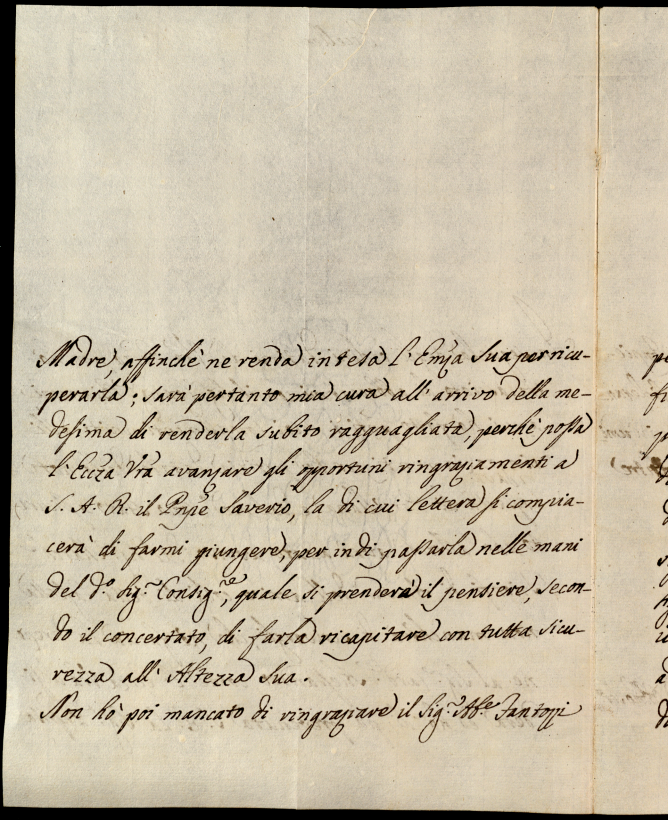 Madre, affinché ne renda intesa l'Emza Sua per ricu-
perarla; sarà pertanto mia cura all'arrivo della me-
desima di renderla subito ragguagliata, perché possa
l'Eccza Vra avanzare gli opportuni ringraziamenti a
S. A. R. il Pnpe Saverio, la di cui lettera si compia-
cerà di farmi giungere, per indi passarla nelle mani
del do. Sigre. Consigre., quale si prenderà il pensiere, secon-
do il concertato, di farla ricapitare con tutta sicu-
rezza all'Altezza Sua.
Non hò poi mancato di ringraziare il Sigr. Abe. Fantozzi